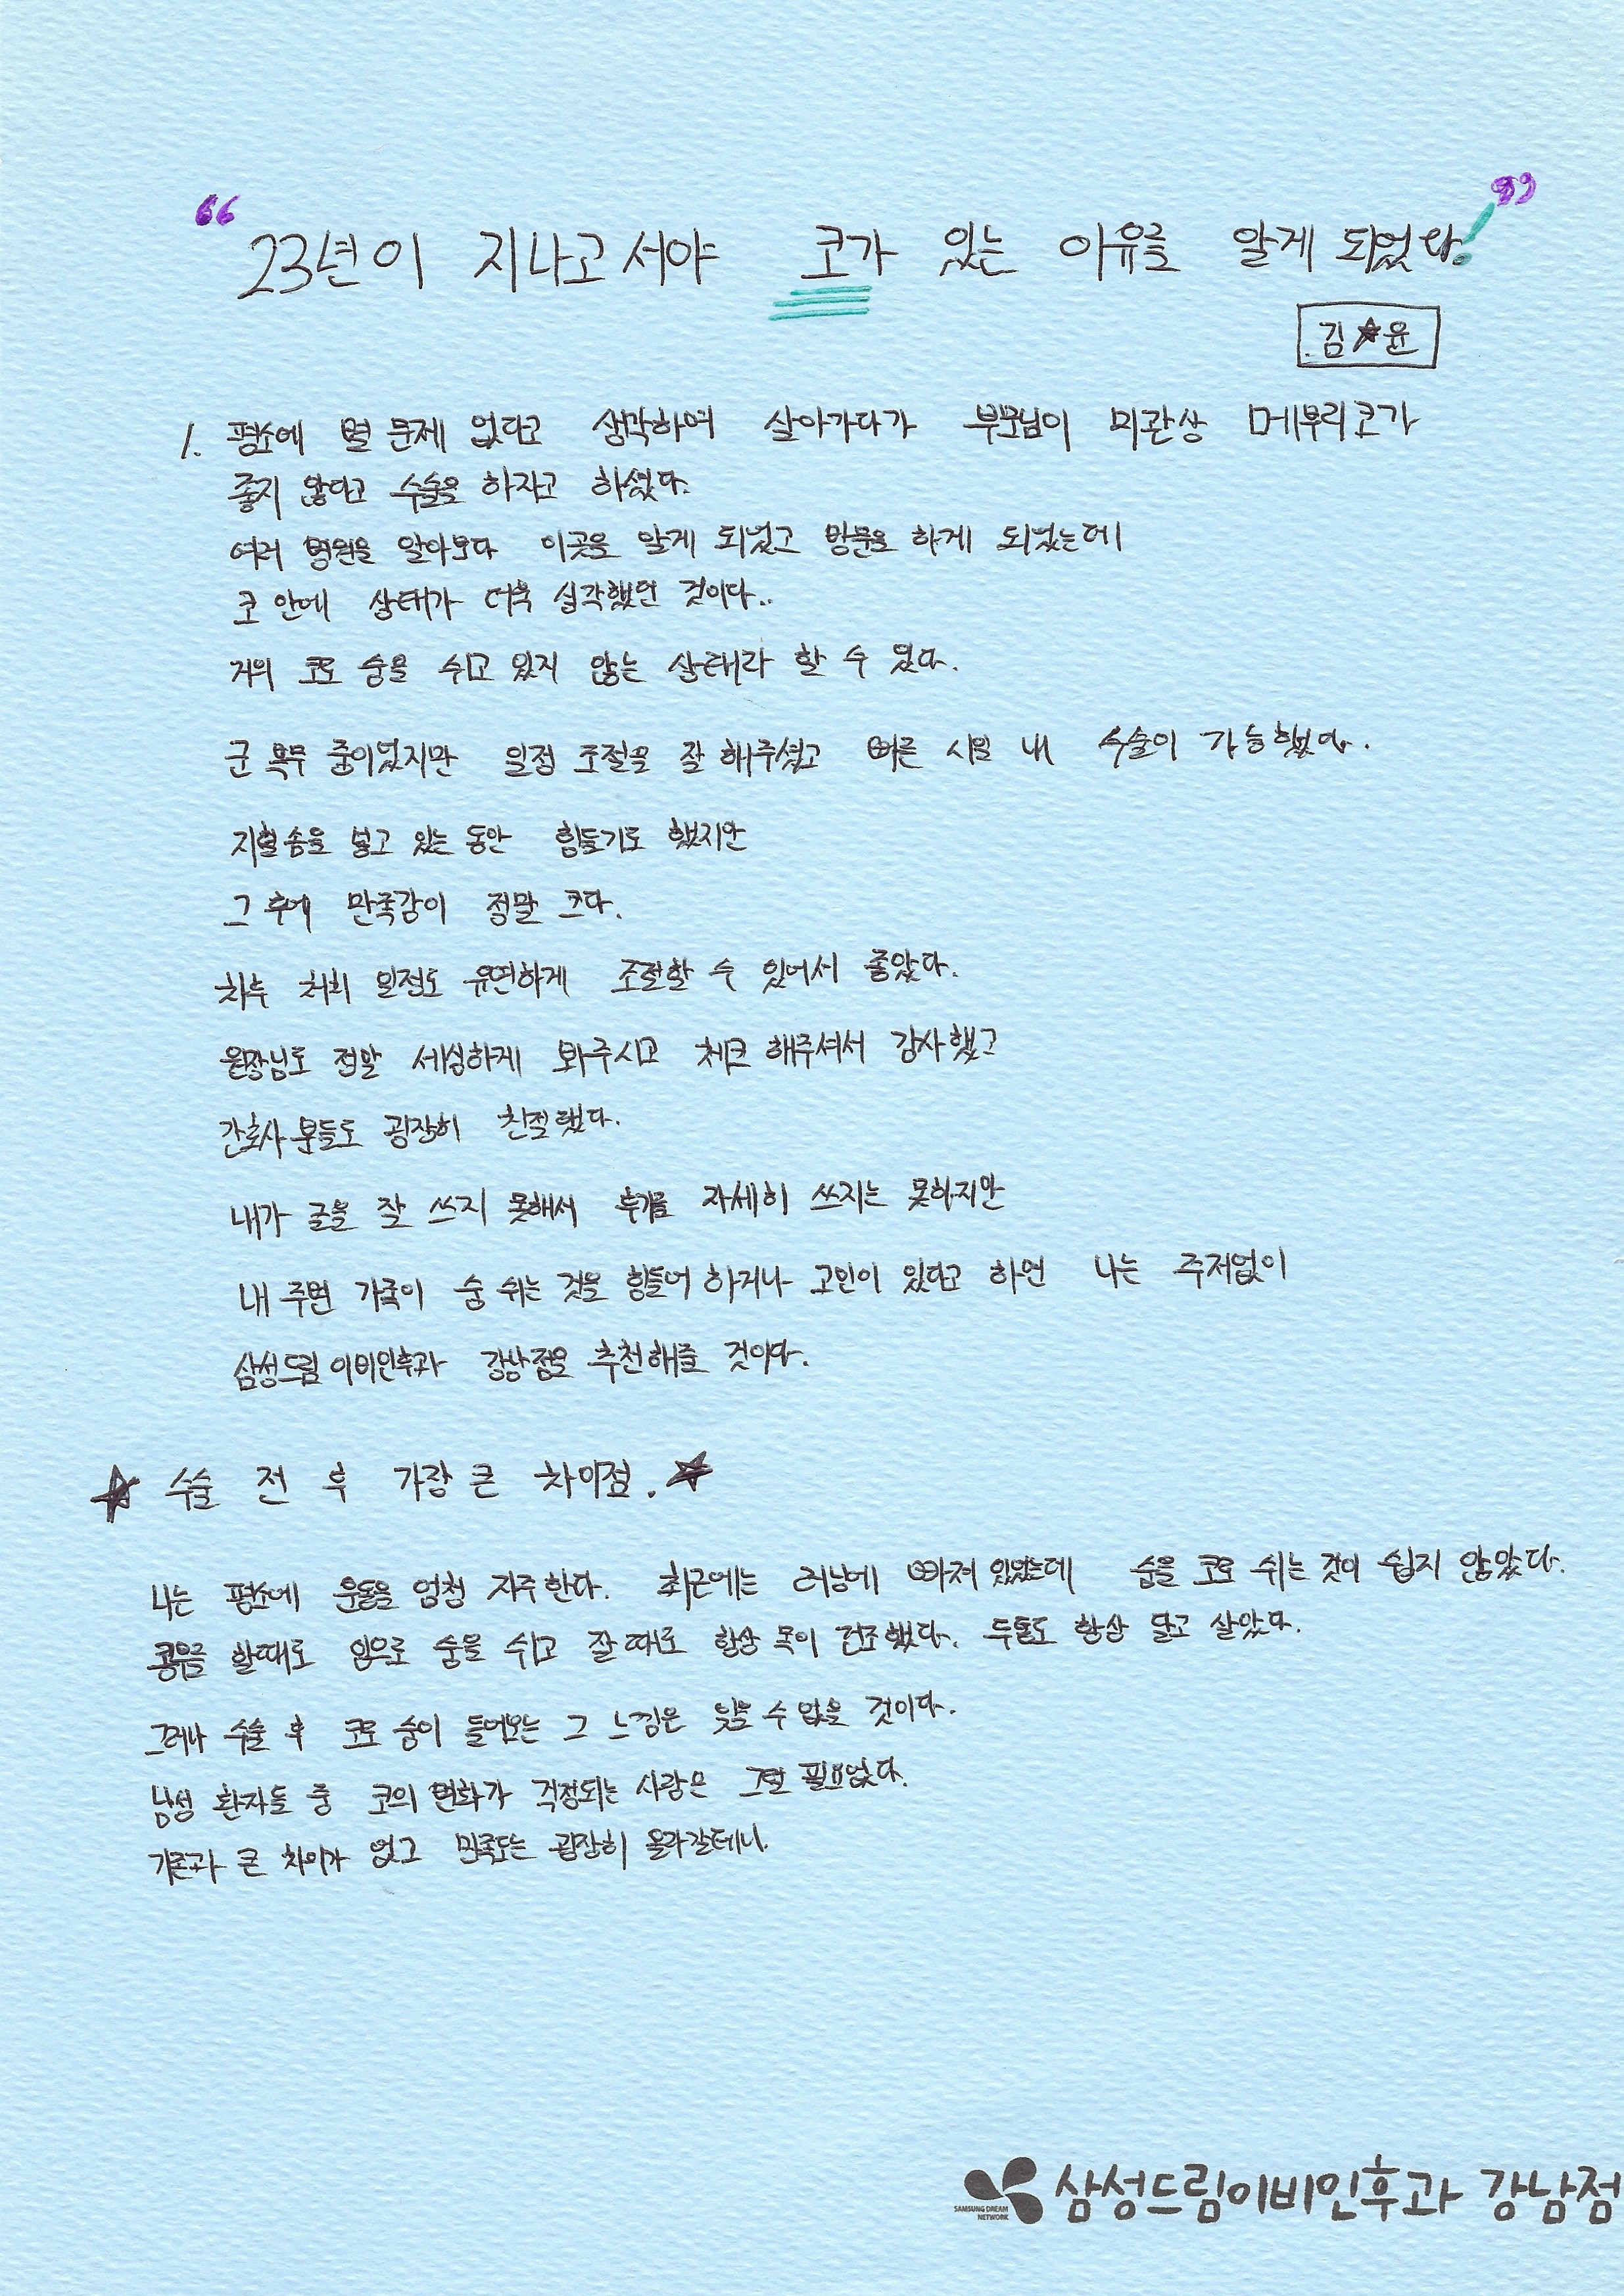 “23년이 지나고서야 코가 있는 이유를 알게 되었다!”
김★윤
1. 평소에 별 문제 없다고 생각하여 살아가다가 부모님이 미관상 메부리코가
좋지 않다고 수술을 하자고 하셨다.
여러 병원을 알아보다 이곳을 알게 되었고 방문을 하게 되었는데
코 안에 상태가 더욱 심각했던 것이다..
거의 코로 숨을 쉬고 있지 않는 상태라 할 수 있다.
군 복무 중이었지만 일정 조절을 잘 해주셨고 빠른 시일 내 수술이 가능했다.
지혈솜을 넣고 있는 동안 힘들기도 했지만
그 후에 만족감이 정말 크다.
차후 처치 일정도 유연하게 조절할 수 있어서 좋았다.
원장님도 정말 세심하게 봐주시고 체크 해주셔서 감사했고
간호사분들도 굉장히 친절했다.
내가 글을 잘 쓰지 못해서 후기를 자세히 쓰지는 못하지만
내 주변 가족이 숨 쉬는 것을 힘들어 하거나 고민이 있다고 하면 나는 주저없이
삼성드림이비인후과 강남점을 추천해줄 것이다.
★ 수술 전 후 가장 큰 차이점. ★
나는 평소에 운동을 엄청 자주한다. 최근에는 러닝에 빠져 있었는데 숨을 코로 쉬는 것이 쉽지 않았다.
공부를 할때도 입으로 숨을 쉬고 잘때도 항상 목이 건조했다. 두통도 항상 달고 살았다.
그러나 수술 후 코로 숨이 들어오는 그 느낌은 잊을 수 없을 것이다.
남성 환자들 중 코의 변화가 걱정되는 사람은 그럴 필요없다.
기존과 큰 차이가 없고 만족도는 굉장히 올라갈테니.
SAMSUNG DREAM NETWORK
삼성드림이비인후과 강남점